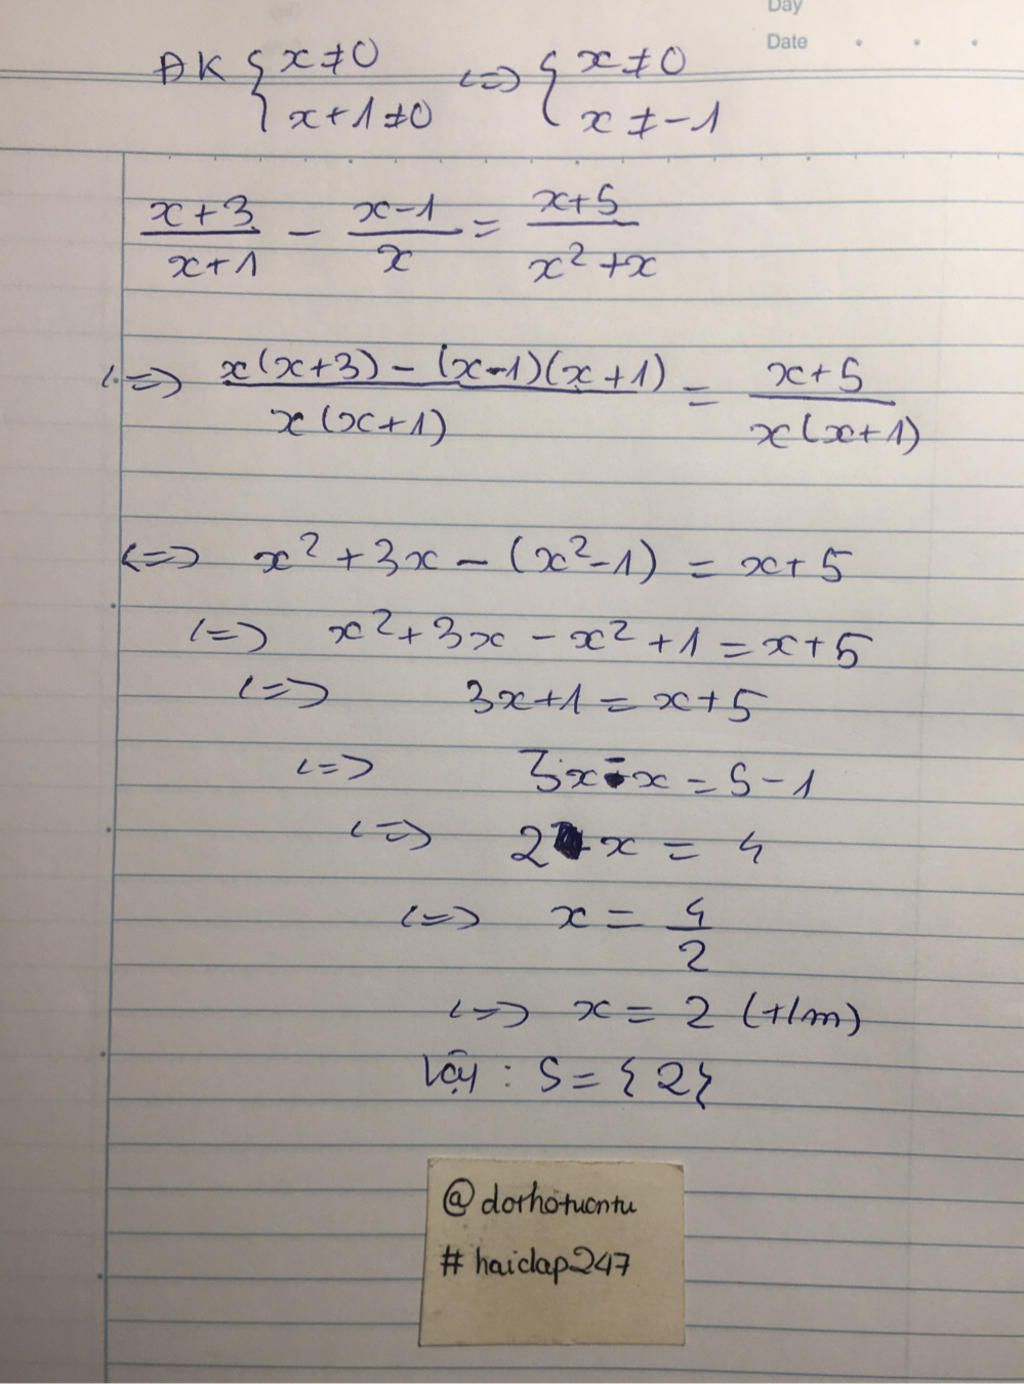 Day
Date
ĐK { x ≠ 0 <=> { x ≠ 0
x + 1 ≠ 0 x ≠ -1
x+3 / x+1 - x-1 / x = x+5 / x² + x
<=> x(x+3) - (x-1)(x+1) / x(x+1) = x+5 / x(x+1)
<=> x² + 3x - (x² - 1) = x + 5
<=> x² + 3x - x² + 1 = x + 5
<=> 3x + 1 = x + 5
<=> 3x - x = 5 - 1
<=> 2x = 4
<=> x = 4/2
<=> x = 2 (t/m)
Vậy : S = {2}
@dorhotuontu
# haidap247